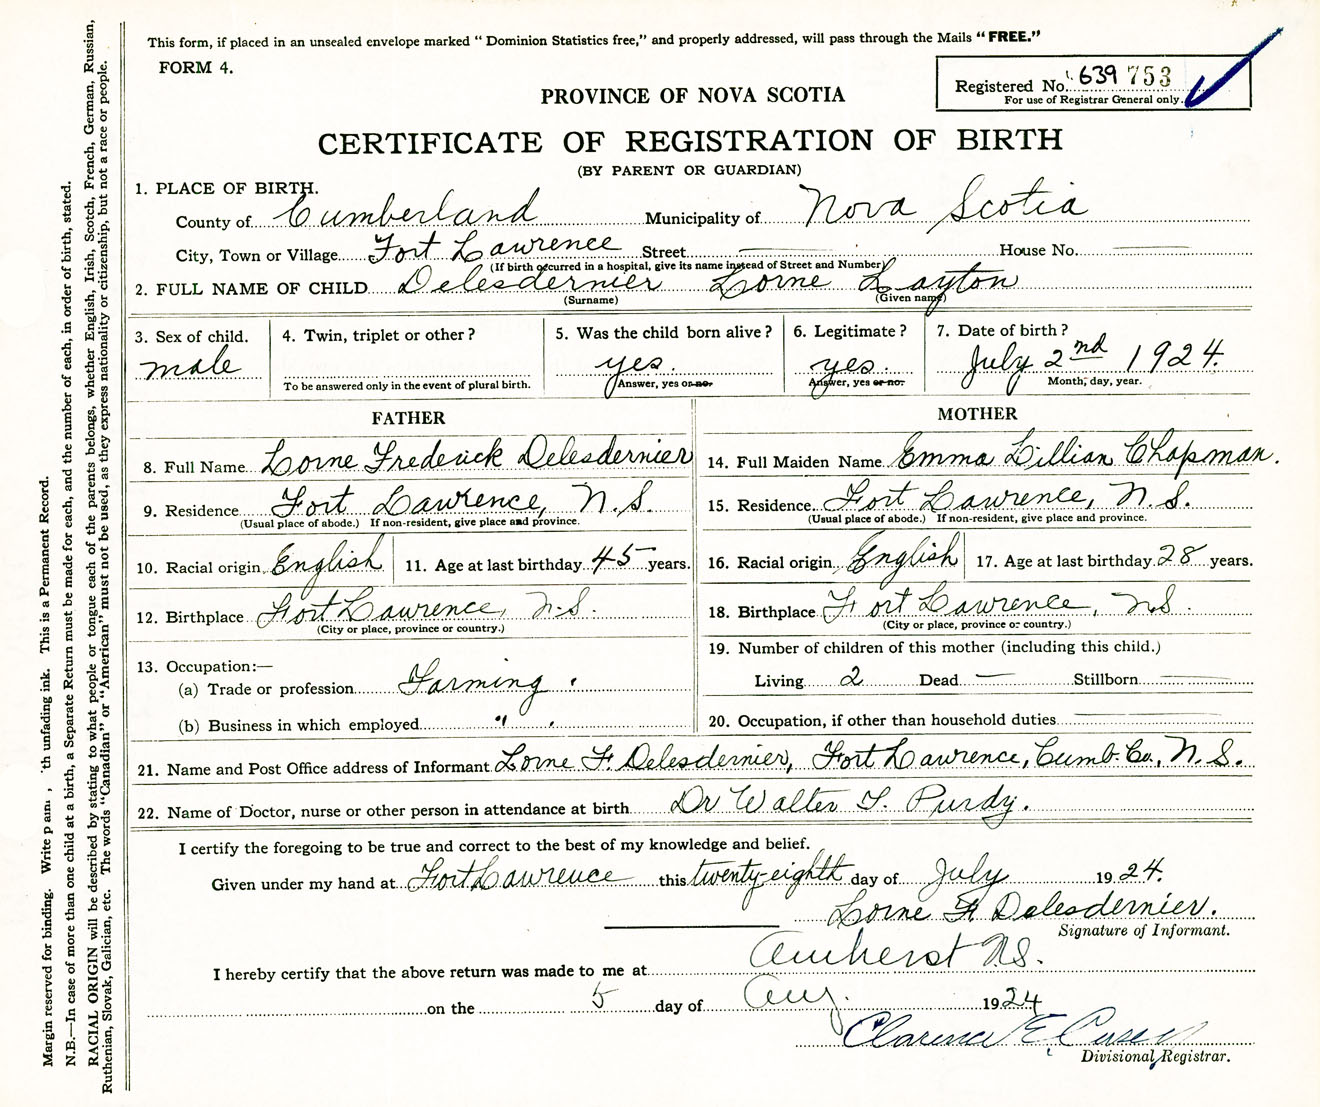 This form, if placed in an unsealed envelope marked "Dominion Statistics free," and properly addressed, will pass through the Mails "FREE."
FORM 4.
Registered No. 639 753
For use of Registrar General only.
PROVINCE OF NOVA SCOTIA
CERTIFICATE OF REGISTRATION OF BIRTH
(BY PARENT OR GUARDIAN)
1. PLACE OF BIRTH.
County of Cumberland Municipality of Nova Scotia
City, Town or Village Fort Lawrence Street — House No. —
(If birth occurred in a hospital, give its name instead of Street and Number)
2. FULL NAME OF CHILD Delesdernier Lorne Layton
(Surname) (Given name)
3. Sex of child. 4. Twin, triplet or other? 5. Was the child born alive? 6. Legitimate? 7. Date of birth?
male yes. yes. July 2nd 1924.
To be answered only in the event of plural birth. Answer, yes or no. Answer, yes or no. Month, day, year.
FATHER MOTHER
8. Full Name Lorne Frederick Delesdernier 14. Full Maiden Name Emma Lillian Chapman.
9. Residence Fort Lawrence, N.S. 15. Residence Fort Lawrence, N.S.
(Usual place of abode.) If non-resident, give place and province. (Usual place of abode.) If non-resident, give place and province.
10. Racial origin English 11. Age at last birthday 45 years. 16. Racial origin English 17. Age at last birthday 28 years.
12. Birthplace Fort Lawrence, N.S. 18. Birthplace Fort Lawrence, N.S.
(City or place, province or country.) (City or place, province or country.)
13. Occupation:— 19. Number of children of this mother (including this child.)
(a) Trade or profession Farming. Living 2 Dead — Stillborn —
(b) Business in which employed " . 20. Occupation, if other than household duties —
21. Name and Post Office address of Informant Lorne F. Delesdernier, Fort Lawrence, Cumb. Co., N.S.
22. Name of Doctor, nurse or other person in attendance at birth Dr Walter T. Purdy.
I certify the foregoing to be true and correct to the best of my knowledge and belief.
Given under my hand at Fort Lawrence this twenty-eighth day of July 1924.
Lorne F. Delesdernier.
Signature of Informant.
I hereby certify that the above return was made to me at Amherst N.S.
on the 5 day of Aug. 1924
Clarence E.
Divisional Registrar.
Margin reserved for binding. Write unfading ink. This is a Permanent Record.
N.B.—In case of more than one child at a birth, a Separate Return must be made for each, and the number of each, in order of birth, stated.
RACIAL ORIGIN will be described by stating to what people or tongue each of the parents belongs, whether English, Irish, Scotch, French, German, Russian,
Ruthenian, Slovak, Galician, etc. The words "Canadian" or "American" must not be used, as they express nationality or citizenship, but not a race or people.